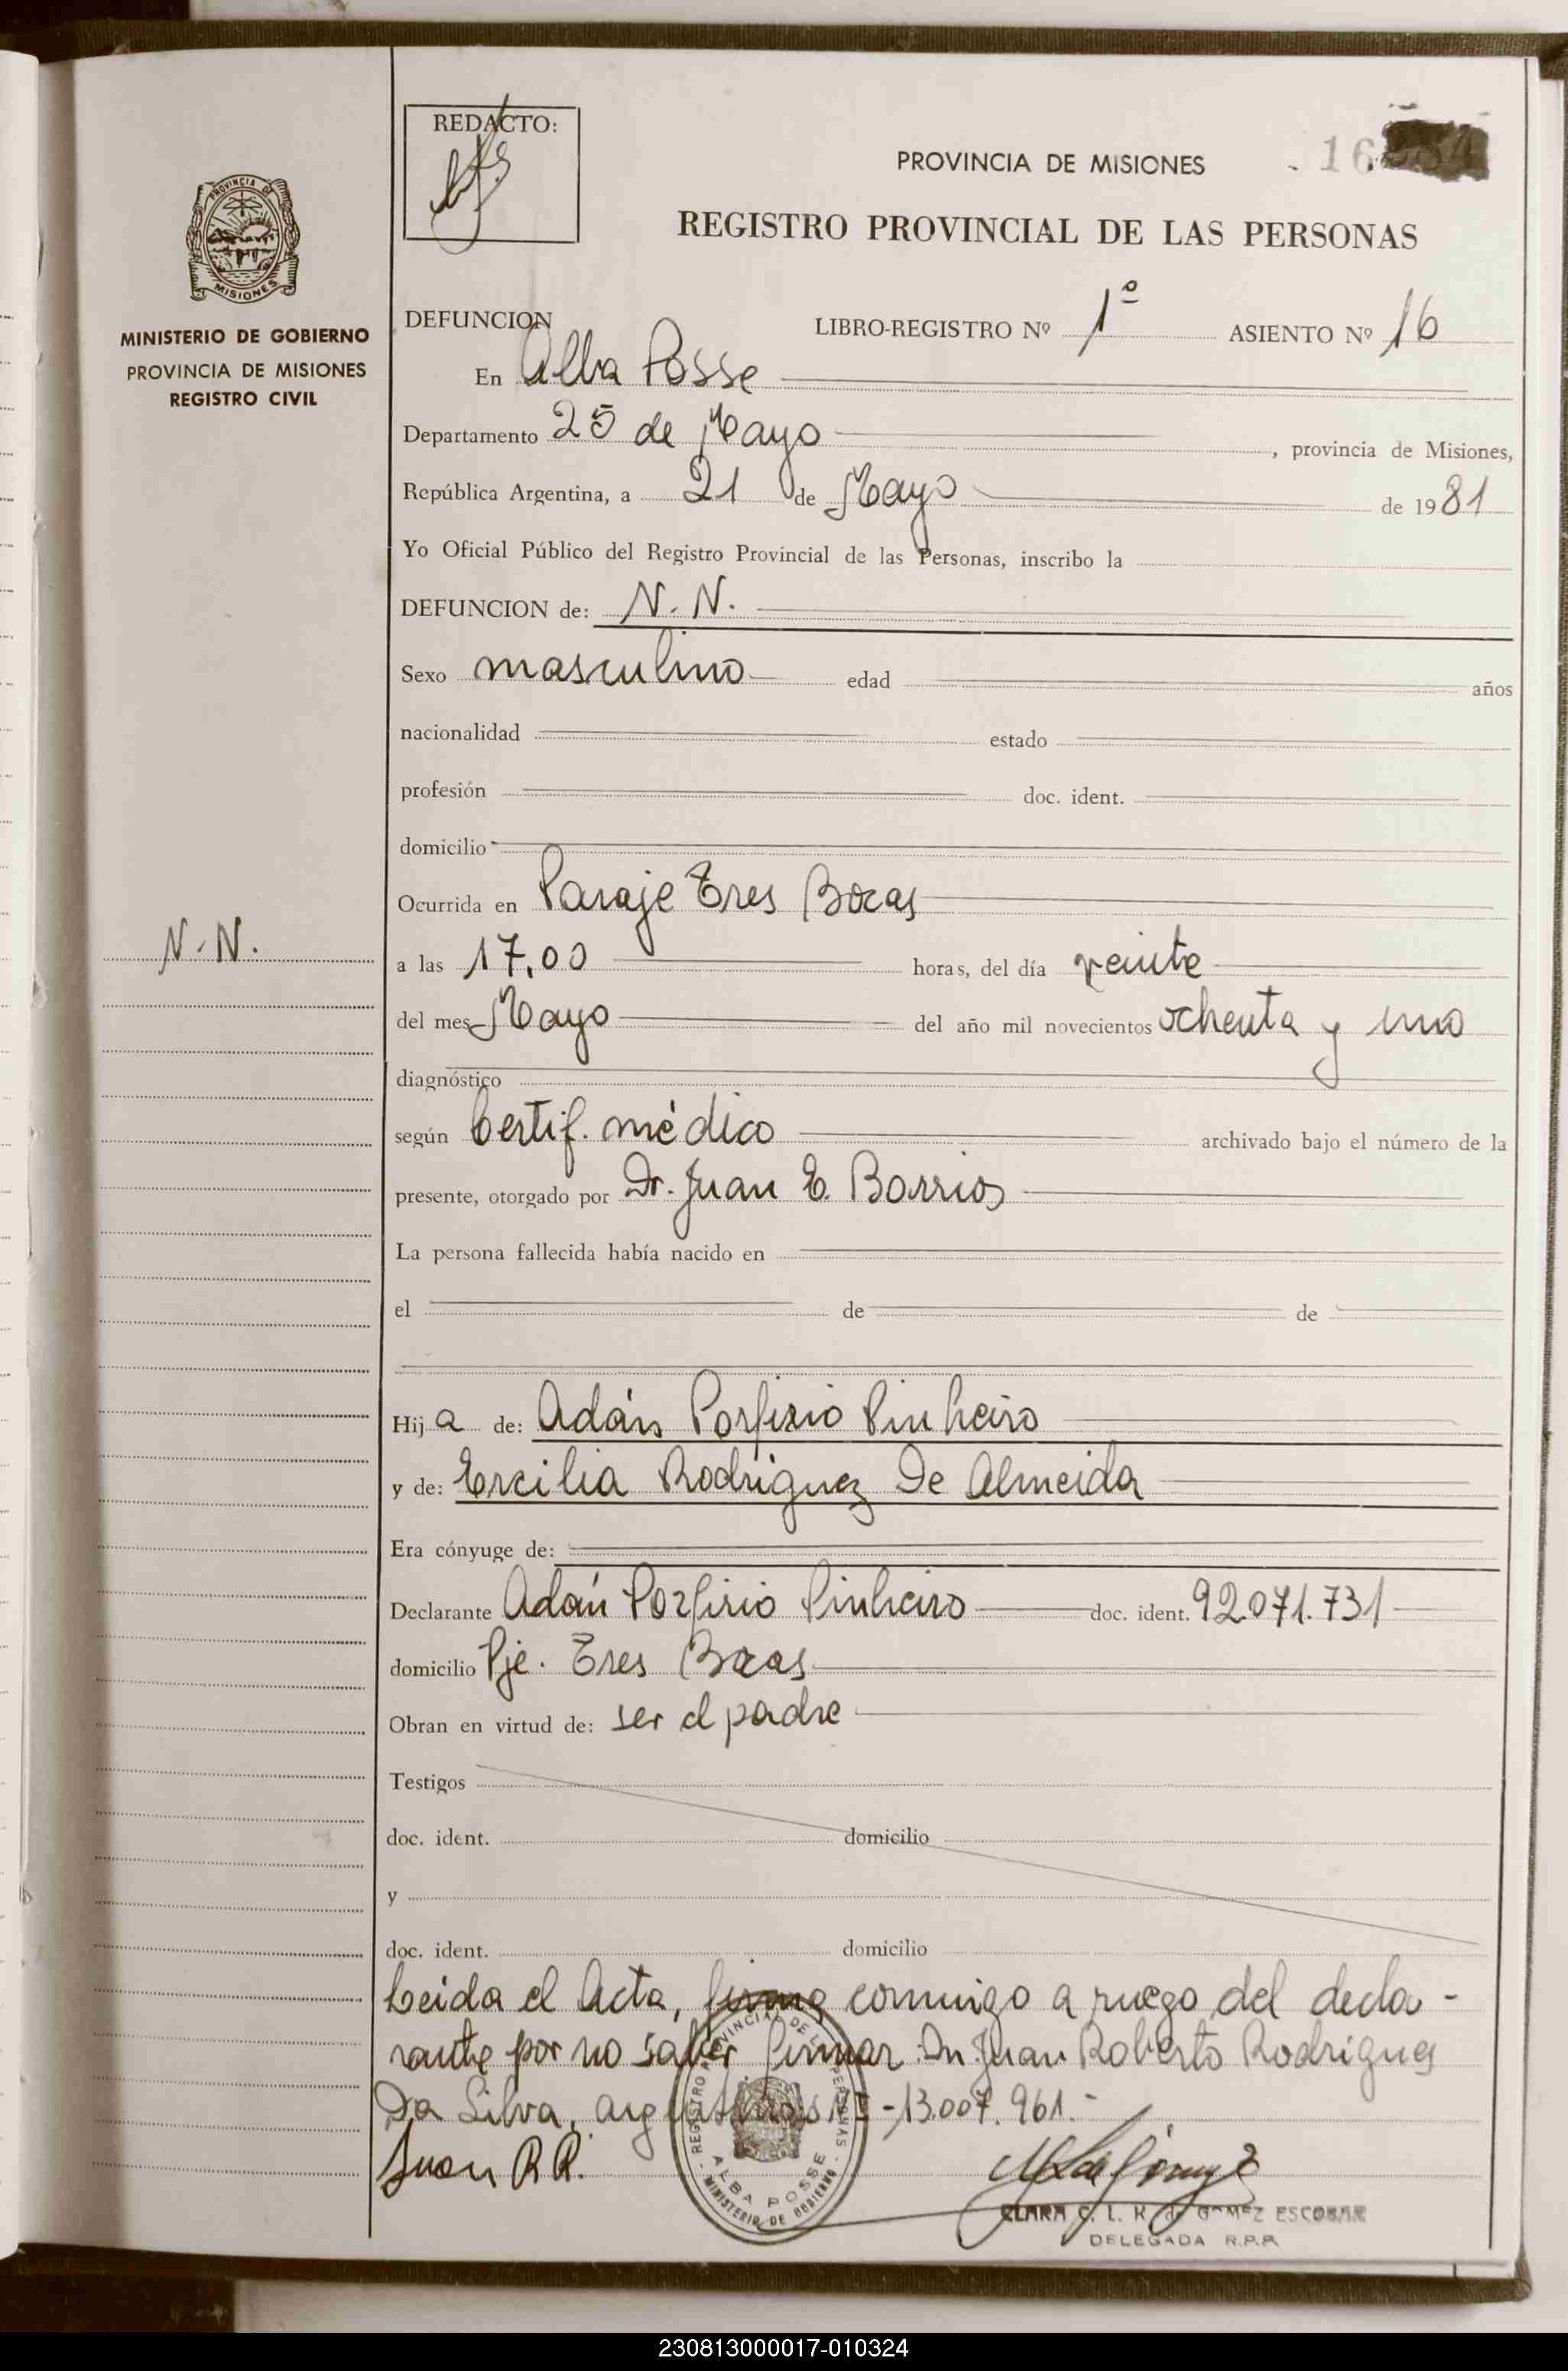 REDACTO:
PROVINCIA DE MISIONES
16
REGISTRO PROVINCIAL DE LAS PERSONAS
PROVINCIA DE
MISIONES
MINISTERIO DE GOBIERNO
PROVINCIA DE MISIONES
REGISTRO CIVIL
DEFUNCION
LIBRO-REGISTRO Nº 1º ASIENTO Nº 16
En Alba Posse
Departamento 25 de Mayo, provincia de Misiones,
República Argentina, a 21 de Mayo de 1981
Yo Oficial Público del Registro Provincial de las Personas, inscribo la
DEFUNCION de: N. N.
Sexo masculino edad años
nacionalidad estado
profesión doc. ident.
domicilio
Ocurrida en Paraje Tres Bocas
N. N.
a las 17,00 horas, del día veinte
del mes Mayo del año mil novecientos ochenta y uno
diagnóstico
según Certif. médico archivado bajo el número de la
presente, otorgado por Dr. Juan E. Barrios
La persona fallecida había nacido en
el de de
Hija de: Adán Porfirio Pinheiro
y de: Ercilia Rodriguez De Almeida
Era cónyuge de:
Declarante Adán Porfirio Pinheiro doc. ident. 92.071.731
domicilio Pje. Tres Bocas
Obran en virtud de: ser el padre
Testigos
doc. ident. domicilio
y
doc. ident. domicilio
Leida el Acta, firma conmigo a ruego del decla-
rante por no saber firmar Dn. Juan Roberto Rodrigues
Da Silva, -13.007.961.-
Juan R R.
REGISTRO PROVINCIAL DE LAS PERSONAS
ALBA POSSE
MINISTERIO DE GOBIERNO
CLARA C. L. K. de GOMEZ ESCOBAR
DELEGADA R.P.P.
230813000017-010324